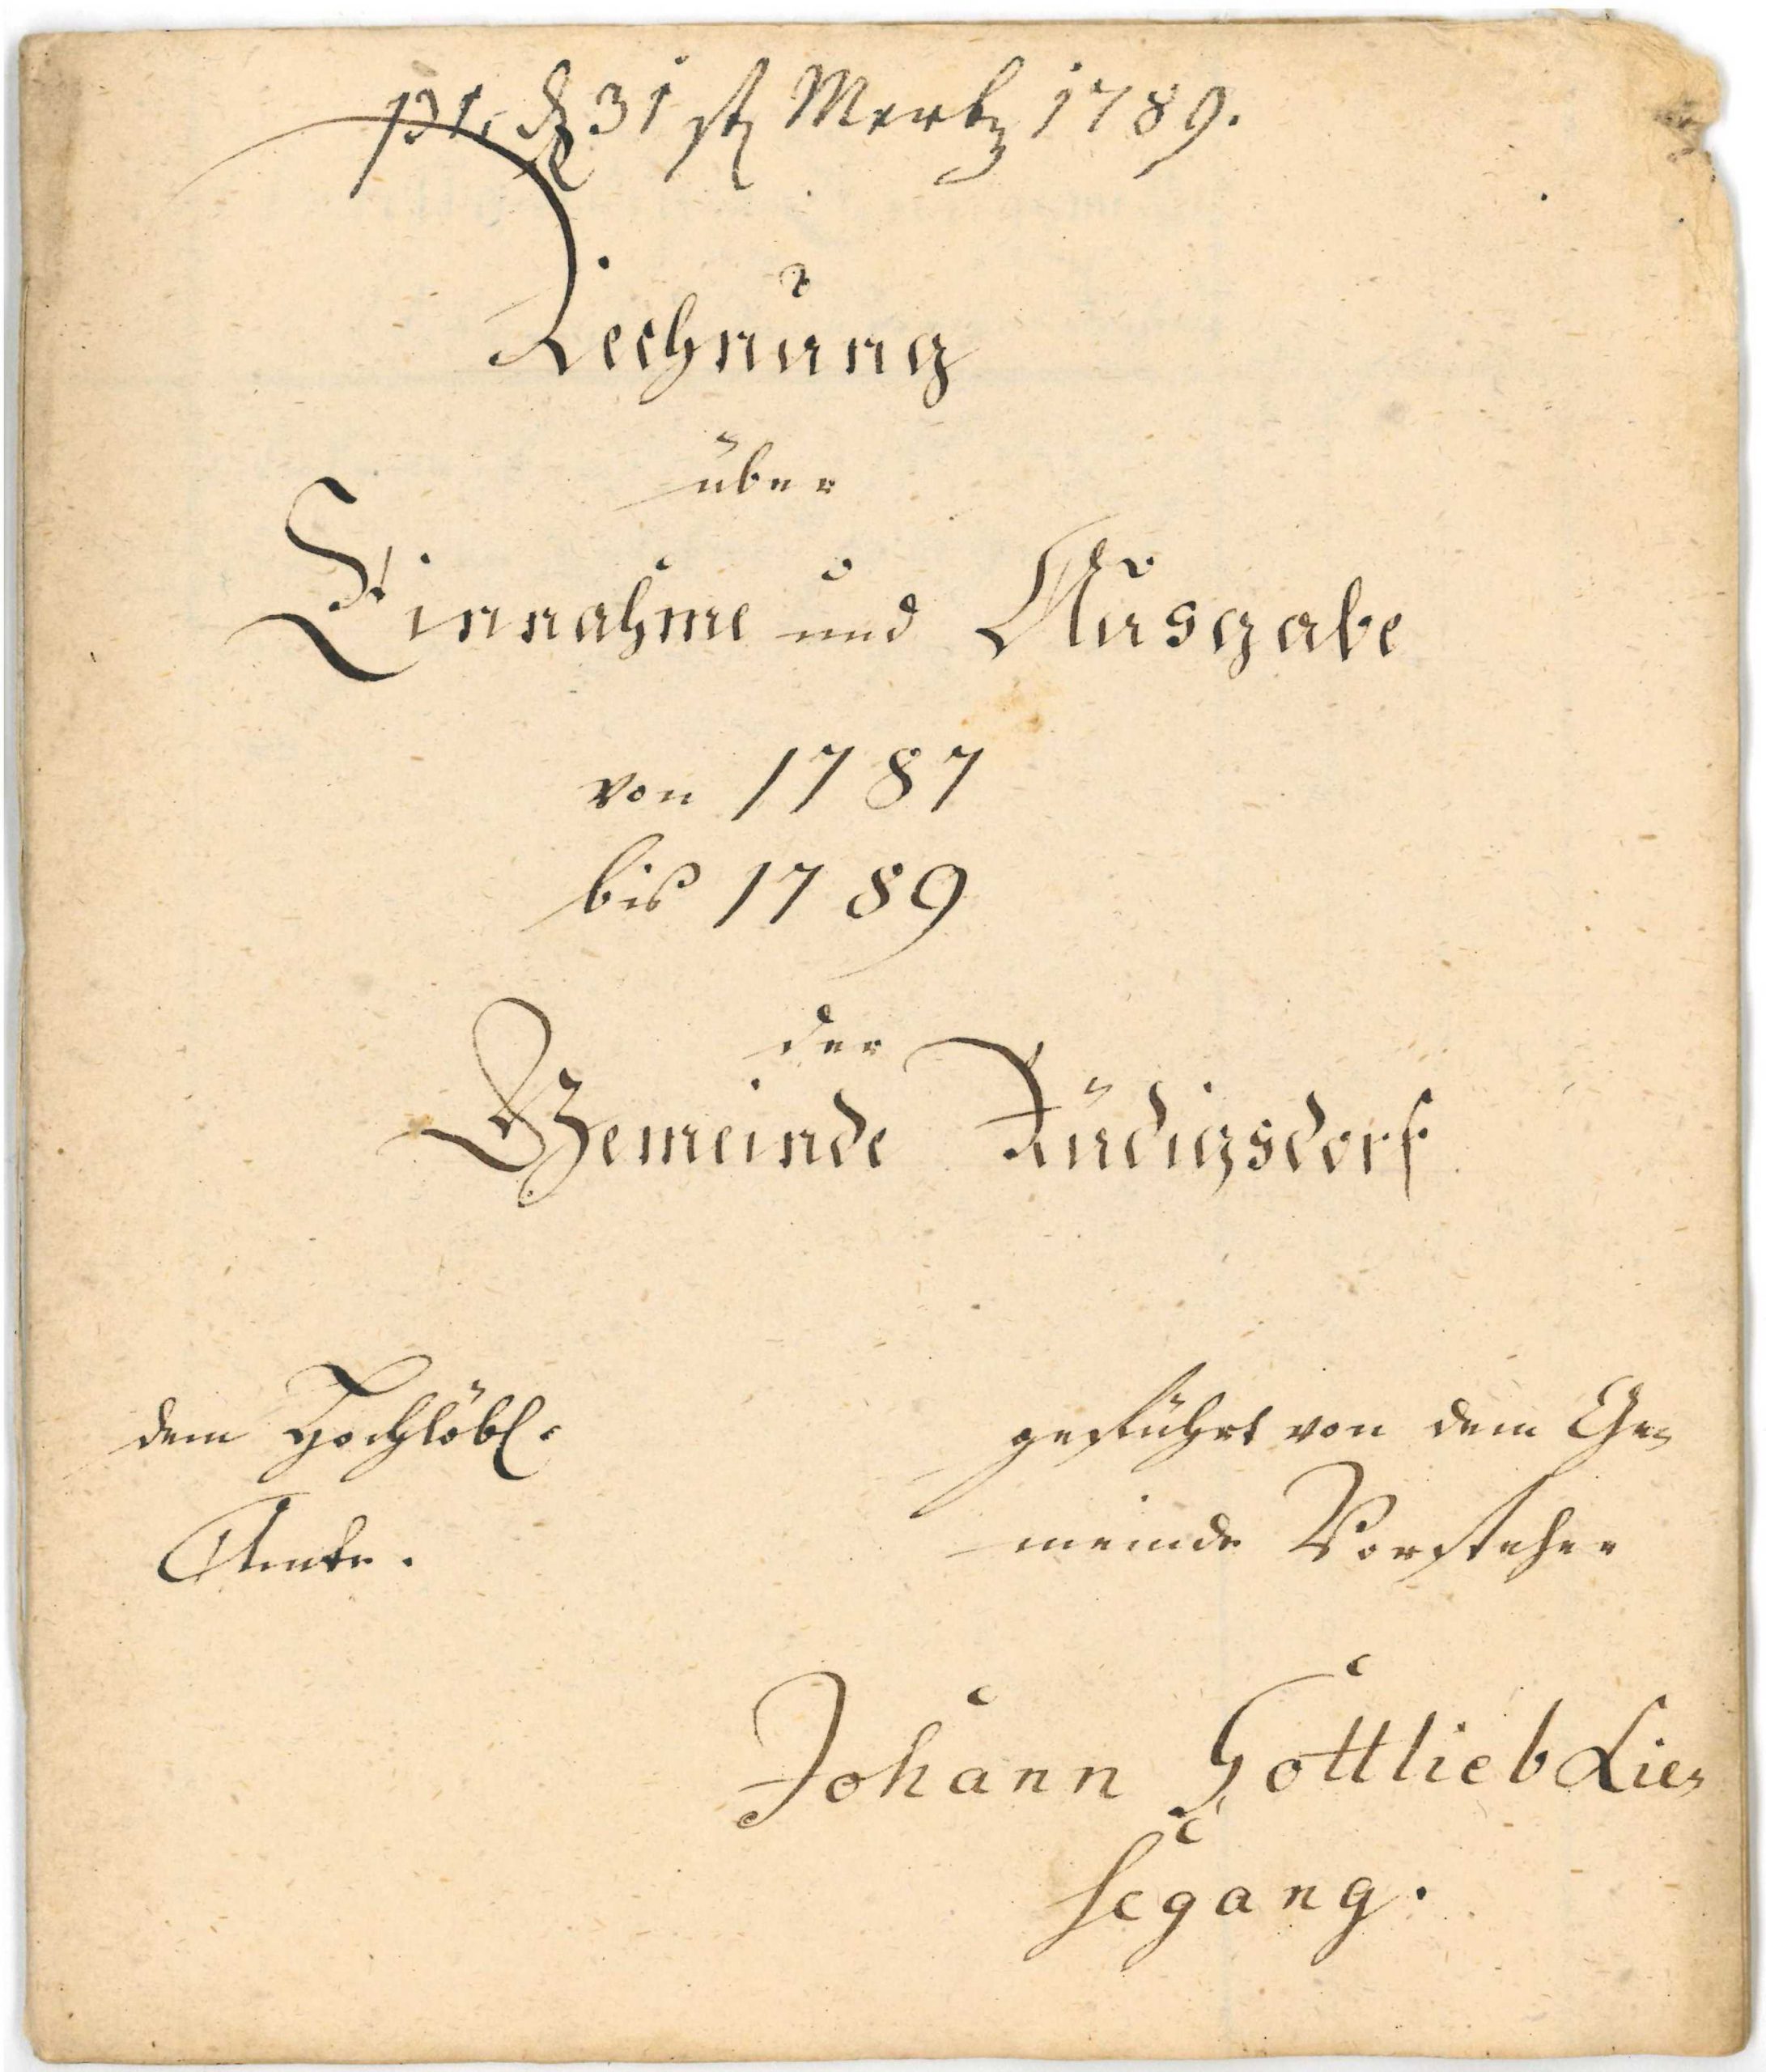 pt. d 31 st Mertz 1789.
Rechnung
über
Einnahme und Ausgabe
von 1787
bis 1789
der
Gemeinde Rüdigsdorf
dem Hochlöbl.
Amte.
geführt von dem Ge=
meinde Vorsteher
Johann Gottlieb Lie=
segang.